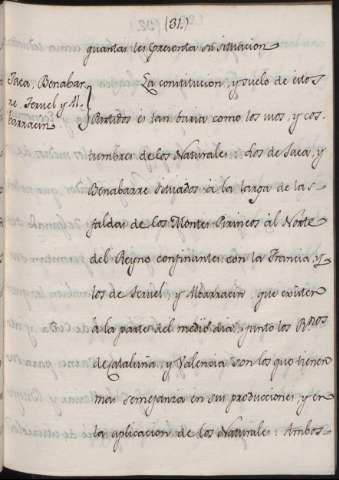 (31.)
quantas les presenta su situacion
Jaca, Benabar-
re, Teruel y Al-
barracin
La constitucion, y suelo de estos
Partidos es tan baria como los usos, y cos-
tumbres de los Naturales: Los de Jaca, y
Benabarre situados à la larga de las
faldas de los Montes Pirineos al Norte
del Reyno confinantes con la Francia, y
los de Teruel, y Albarracin, que existen
à la parte del medio dia, junto los Rnos
de Cataluña, y Valencia son los que tienen
mas semejanza en sus producciones, y en
la aplicacion de los Naturales: Ambos